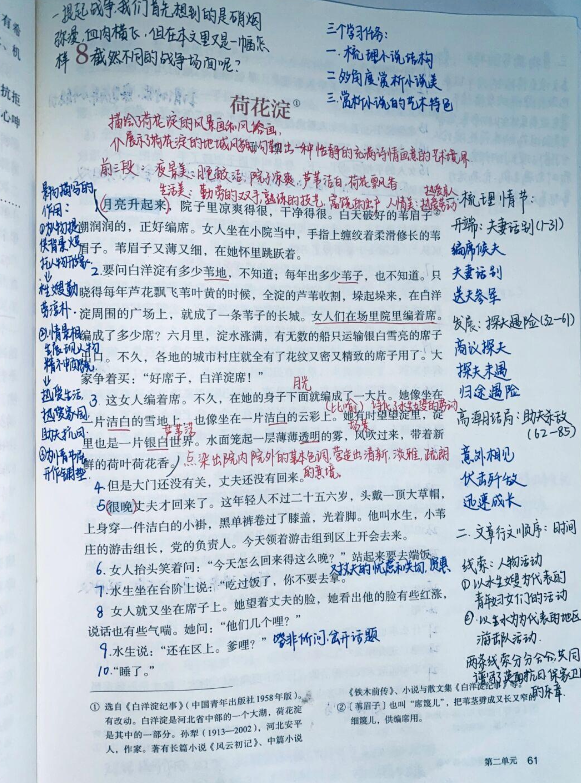 一提起战争,我们首先想到的是硝烟
弥漫,血肉横飞,但在本文里又是一幅怎
样截然不同的战争场面呢?
三个学习任务:
一.梳理小说结构
二.多角度赏析小说美
三.赏析小说的艺术特色
8
荷花淀①
描绘了荷花淀的风景画和风俗画,
前三段:夜景美:月色皎洁,院子凉爽,芦苇洁白,荷花飘香
月亮升起来,院子里凉爽得很,干净得很。白天破好的苇眉子②
潮润润的,正好编席。女人坐在小院当中,手指上缠绞着柔滑修长的苇
眉子。苇眉子又薄又细,在她怀里跳跃着。
2.要问白洋淀有多少苇地,不知道;每年出多少苇子,也不知道。只
晓得每年芦花飘飞苇叶黄的时候,全淀的芦苇收割,垛起垛来,在白洋
淀周围的广场上,就成了一条苇子的长城。女人们在场里院里编着席。
编成了多少席?六月里,淀水涨满,有无数的船只运输银白雪亮的席子
出口。不久,各地的城市村庄就全有了花纹又密又精致的席子用了。大
家争着买:“好席子,白洋淀席!”
月光
3.这女人编着席。不久,在她的身子下面就编成了一大片。她像坐在
一片洁白的雪地上,也像坐在一片洁白的云彩上。她有时望望淀里,淀
里也是一片银白世界。水面笼起一层薄薄透明的雾,风吹过来,带着新
鲜的荷叶荷花香。
点染出院内院外的基本色调,营造出清新、淡雅、疏朗
的意境
4.但是大门还没有关,丈夫还没有回来。
5.很晚丈夫才回来了。这年轻人不过二十五六岁,头戴一顶大草帽,
上身穿一件洁白的小褂,黑单裤卷过了膝盖,光着脚。他叫水生,小苇
庄的游击组长,党的负责人。今天领着游击组到区上开会去来。
6.女人抬头笑着问:“今天怎么回来得这么晚?”站起来要去端饭。
7.水生坐在台阶上说:“吃过饭了,你不要去拿。”
8女人就又坐在席子上。她望着丈夫的脸,她看出他的脸有些红涨,
说话也有些气喘。她问:“他们几个哩?”
9.水生说:“还在区上。爹哩?”
答非所问,岔开话题
10.“睡了。”
一.梳理情节:
开端:夫妻话别(1-31)
编席候夫
夫妻话别
送夫参军
发展:探夫遇险(32-61)
商议探夫
探夫未遇
归途遇险
高潮结局:助夫杀敌
(62-85)
意外相见
伏击歼敌
迅速成长
二.文章行文顺序:时间
线索:人物活动
①以水生嫂为代表的
青年妇女们的活动
②以水生为代表的地区
游击队活动.
两条线索分分合合,共同
① 选自《白洋淀纪事》(中国青年出版社1958年版)。
有改动。白洋淀是河北省中部的一个大湖,荷花淀
是其中的一部分。孙犁(1913—2002),河北安平
人,作家。著有长篇小说《风云初记》、中篇小说
《铁木前传》、小说与散文集《白洋淀纪事》等。
②〔苇眉子〕也叫“席篾儿”,把苇茎劈成又长又窄的
细篾儿,供编席用。
第二单元 61